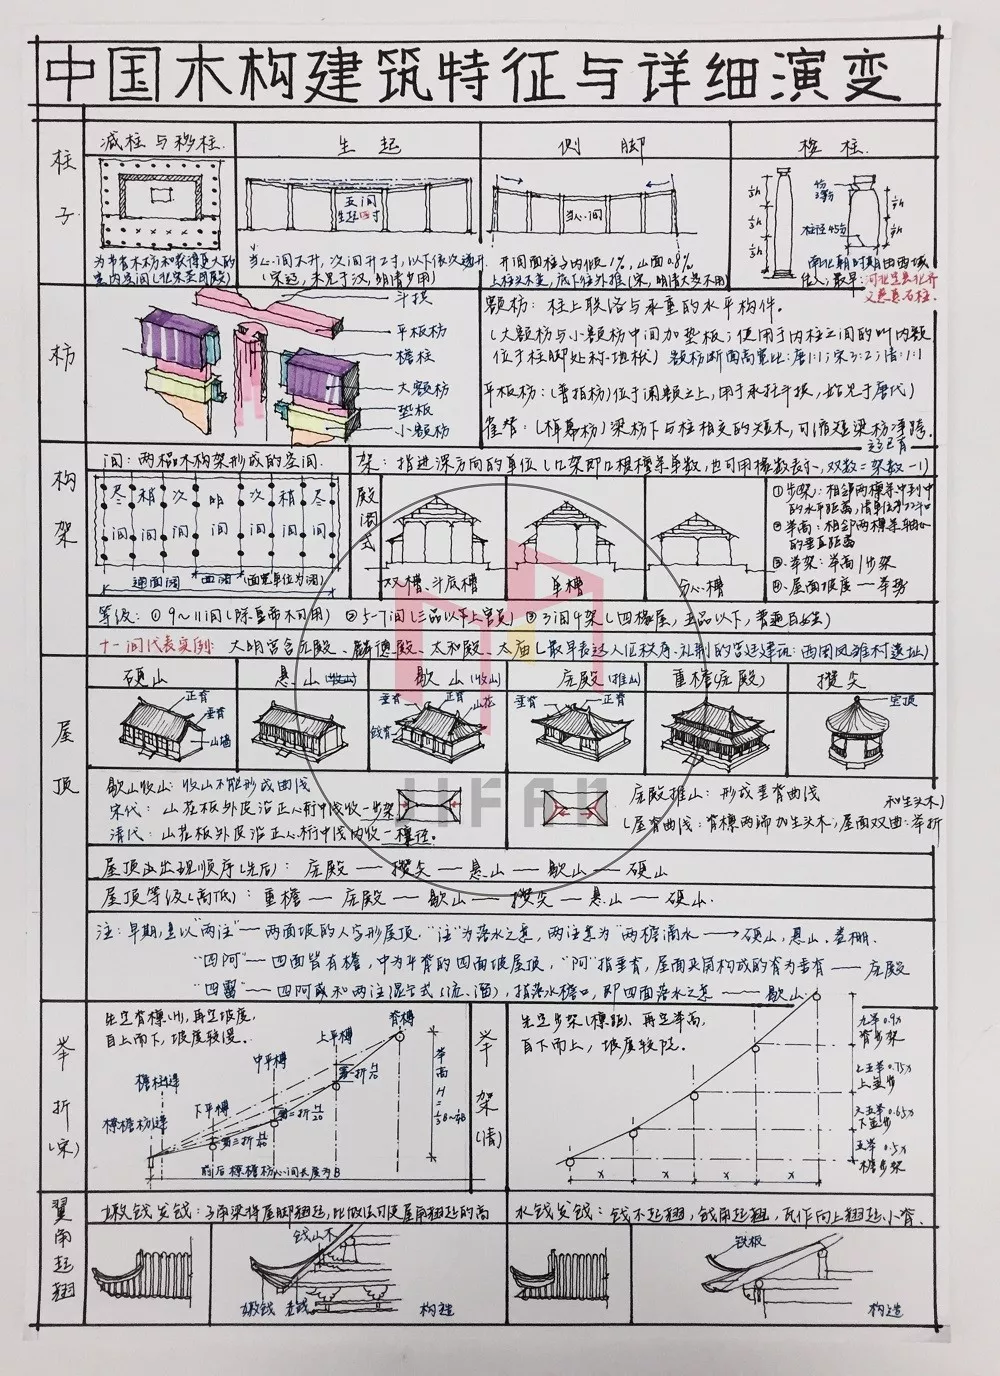 中国木构建筑特征与详细演变
柱子
减柱与移柱.
生起
侧脚
梭柱.
五间
生起四寸
当心间
⅓h
⅓h
⅓h
柱径45分
当心间不升，次间升2寸，以下依次递升
(宋起，未见于汉，明清少用)
开间面柱子内收1%，山面0.8%
上柱头不变，底下往外推(宋，明清大多不用)
南北朝时期由西域
传入，最早：河北定兴北齐
义慈惠石柱.
枋
斗拱
平板枋
檐柱
大额枋
垫板
小额枋
额枋：柱上联络与承重的水平构件。
(大额枋与小额枋中间加垫板；使用于内柱之间的叫内额
位于柱脚处称-地栿) 额枋断面高宽比：唐2:1；宋3:2；清1:1
平板枋：(普拍枋)位于阑额之上，用于承托斗拱，始见于唐代)
雀替：(绰幕枋)梁枋下与柱相交的短木，可缩短梁枋净跨.
构架
间：两榀木构架形成的空间.
架：指进深方向的单位
尽间
梢间
次间
明间
次间
梢间
尽间
通面阔
面阔
(面宽单位为阔)
殿阁式
双槽、斗底槽
单槽
分心槽
①步架：相邻两檩条中到中
的水平距离，
②举高：相邻两檩条轴心
的垂直距离
③举架：举高/步架
④屋面坡度—举势
等级：①9~11间(除皇帝不可用) ②5-7间(三品以上官员) ③3间4架(四椽屋，五品以下，普通百姓)
十一间代表实例：大明宫含元殿、麟德殿、太和殿、太庙(最早表达人伦秩序、礼制的宫廷建筑：西周凤雏村遗址)
屋顶
硬山
悬山
歇山(收山)
庑殿(推山)
重檐(庑殿)
攒尖
正脊
垂脊
山墙
垂脊
正脊
山花
戗脊
垂脊
正脊
宝顶
歇山收山：收山不能形成曲线
宋代：山花板外皮沿正心桁中线收一步架
清代：山花板外皮沿正心桁中线内收一檩径。
庑殿推山：形成垂脊曲线
(屋脊曲线：脊檩两端加生头木，屋面双曲：举折
和生头木)
屋顶出现顺序(先后)：庑殿—攒尖—悬山—歇山—硬山
屋顶等级(高低)：重檐—庑殿—歇山—攒尖—悬山—硬山.
注：早期是以“两注”—两面坡的人字形屋顶，“注”为落水之意，两注意为“两檐滴水→硬山，悬山，卷棚.
“四阿”—四面皆有檐，中为平脊的四面坡屋顶，“阿”指垂脊，屋面夹角构成的脊为垂脊—庑殿
“四霤”—四阿顶和两注混合式(流、溜)，指落水檐口，即四面落水之意—歇山.
举折(宋)
先定脊榑(H)，再定坡度，
自上而下，坡度较缓.
脊榑
上平榑
中平榑
下平榑
檐柱缝
橑檐枋缝
第一折H/10
第二折H/20
第三折H/40
举高H=⅓B~¼B
前后橑檐枋心间长度为B
举架(清)
先定步架(檩距)、再定举高，
自下而上，坡度较陡.
九举0.9x
脊步架
七五举0.75x
上金步
六五举0.65x
下金步
五举0.5x
檐步架
x
x
x
x
翼角起翘
嫩戗发戗：子角梁将屋脚翘起，此做法可使屋角翘起的高
水戗发戗：戗不起翘，戗角起翘，瓦作向上翘起小脊.
戗山木
嫩戗
老戗
构造
铁板
构造
JIFAN